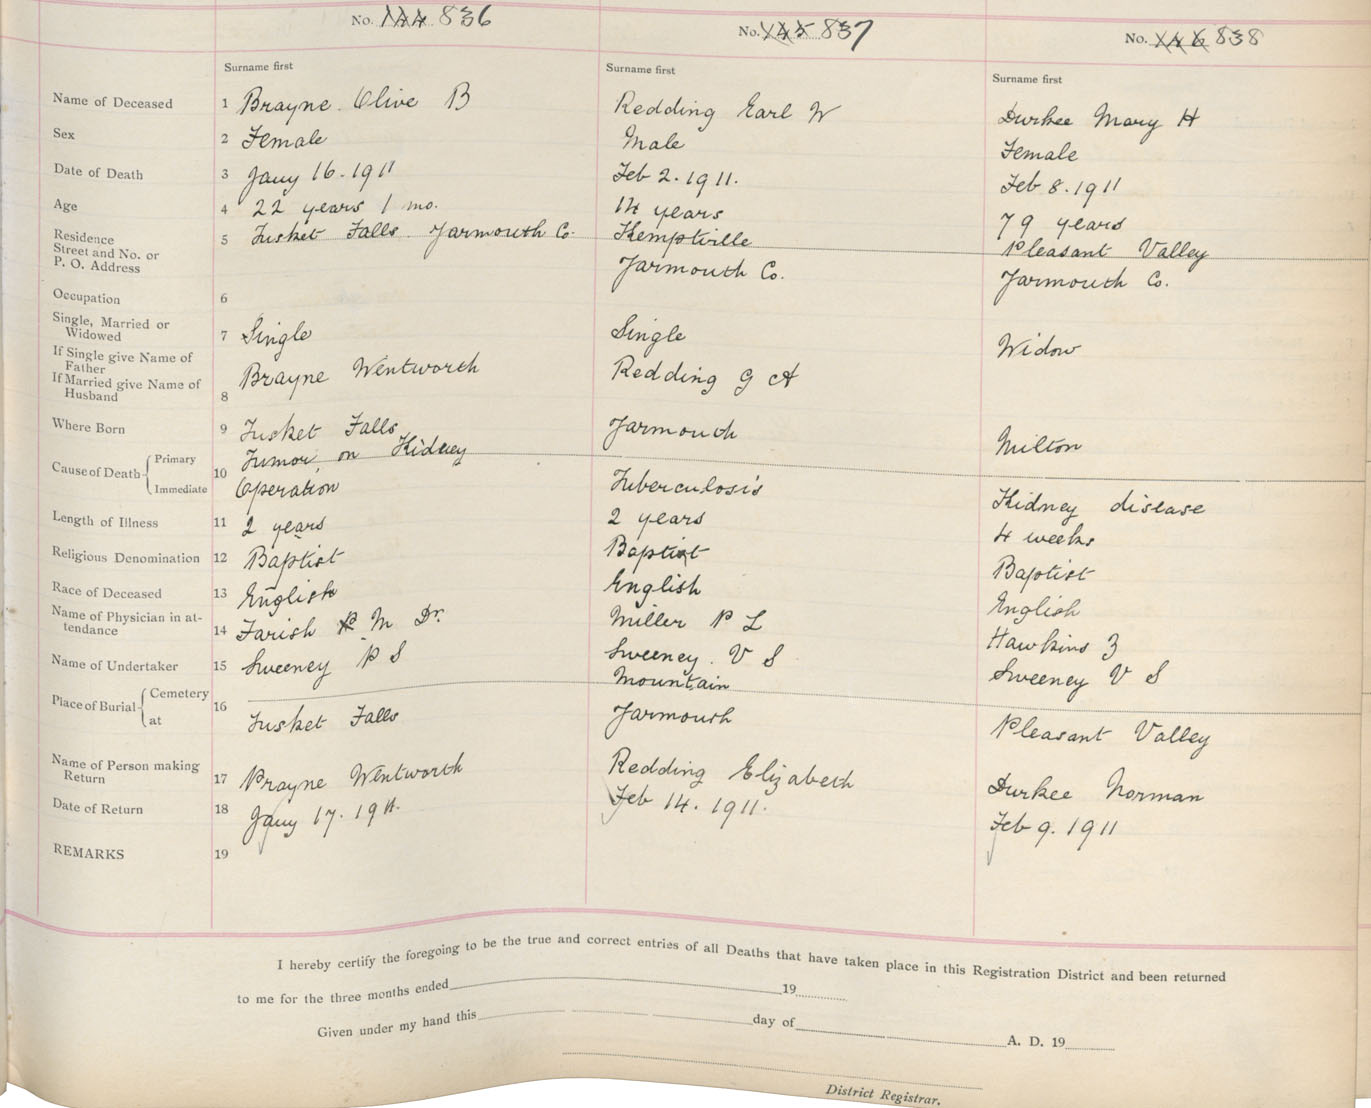 No. 144 836
No. 145 837
No. 146 838
Surname first
Surname first
Surname first
Name of Deceased 1 Brayne Olive B
Redding Earl W
Durkee Mary H
Sex 2 Female
Male
Female
Date of Death 3 Jany 16-1911
Feb 2. 1911.
Feb 8. 1911
Age 4 22 years 1 mo.
14 years
79 years
Residence
Street and No. or
P. O. Address
5 Tusket Falls. Yarmouth Co.
Kemptville
Yarmouth Co.
Pleasant Valley
Yarmouth Co.
Occupation 6
Single, Married or
Widowed
7 Single
Single
Widow
If Single give Name of
Father
If Married give Name of
Husband
8
Brayne Wentworth
Redding G A
Where Born 9 Tusket Falls
Yarmouth
Milton
Cause of Death
Primary
Immediate
10
Tumor, on Kidney
Operation
Tuberculosis
Kidney disease
Length of Illness 11 2 years
2 years
4 weeks
Religious Denomination 12 Baptist
Baptist
Baptist
Race of Deceased 13 English
English
English
Name of Physician in at-
tendance
14 Farish M Dr.
Miller P L
Hawkins Z
Name of Undertaker 15 Sweeney P S
Sweeney. V S
Sweeney V S
Place of Burial
Cemetery
at
16
Tusket Falls
Mountain
Yarmouth
Pleasant Valley
Name of Person making
Return
17 Brayne Wentworth
Redding Elizabeth
Durkee Norman
Date of Return 18 Jany 17. 1911.
Feb 14. 1911.
Feb 9. 1911
REMARKS 19
I hereby certify the foregoing to be the true and correct entries of all Deaths that have taken place in this Registration District and been returned
to me for the three months ended 19
Given under my hand this day of A. D. 19
District Registrar.